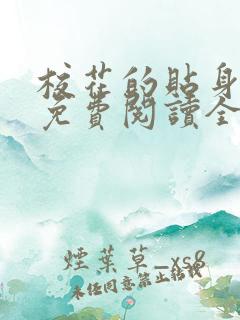 校花的貼身
免費閱讀全
煙葉草_xs8
未经同意禁止转载